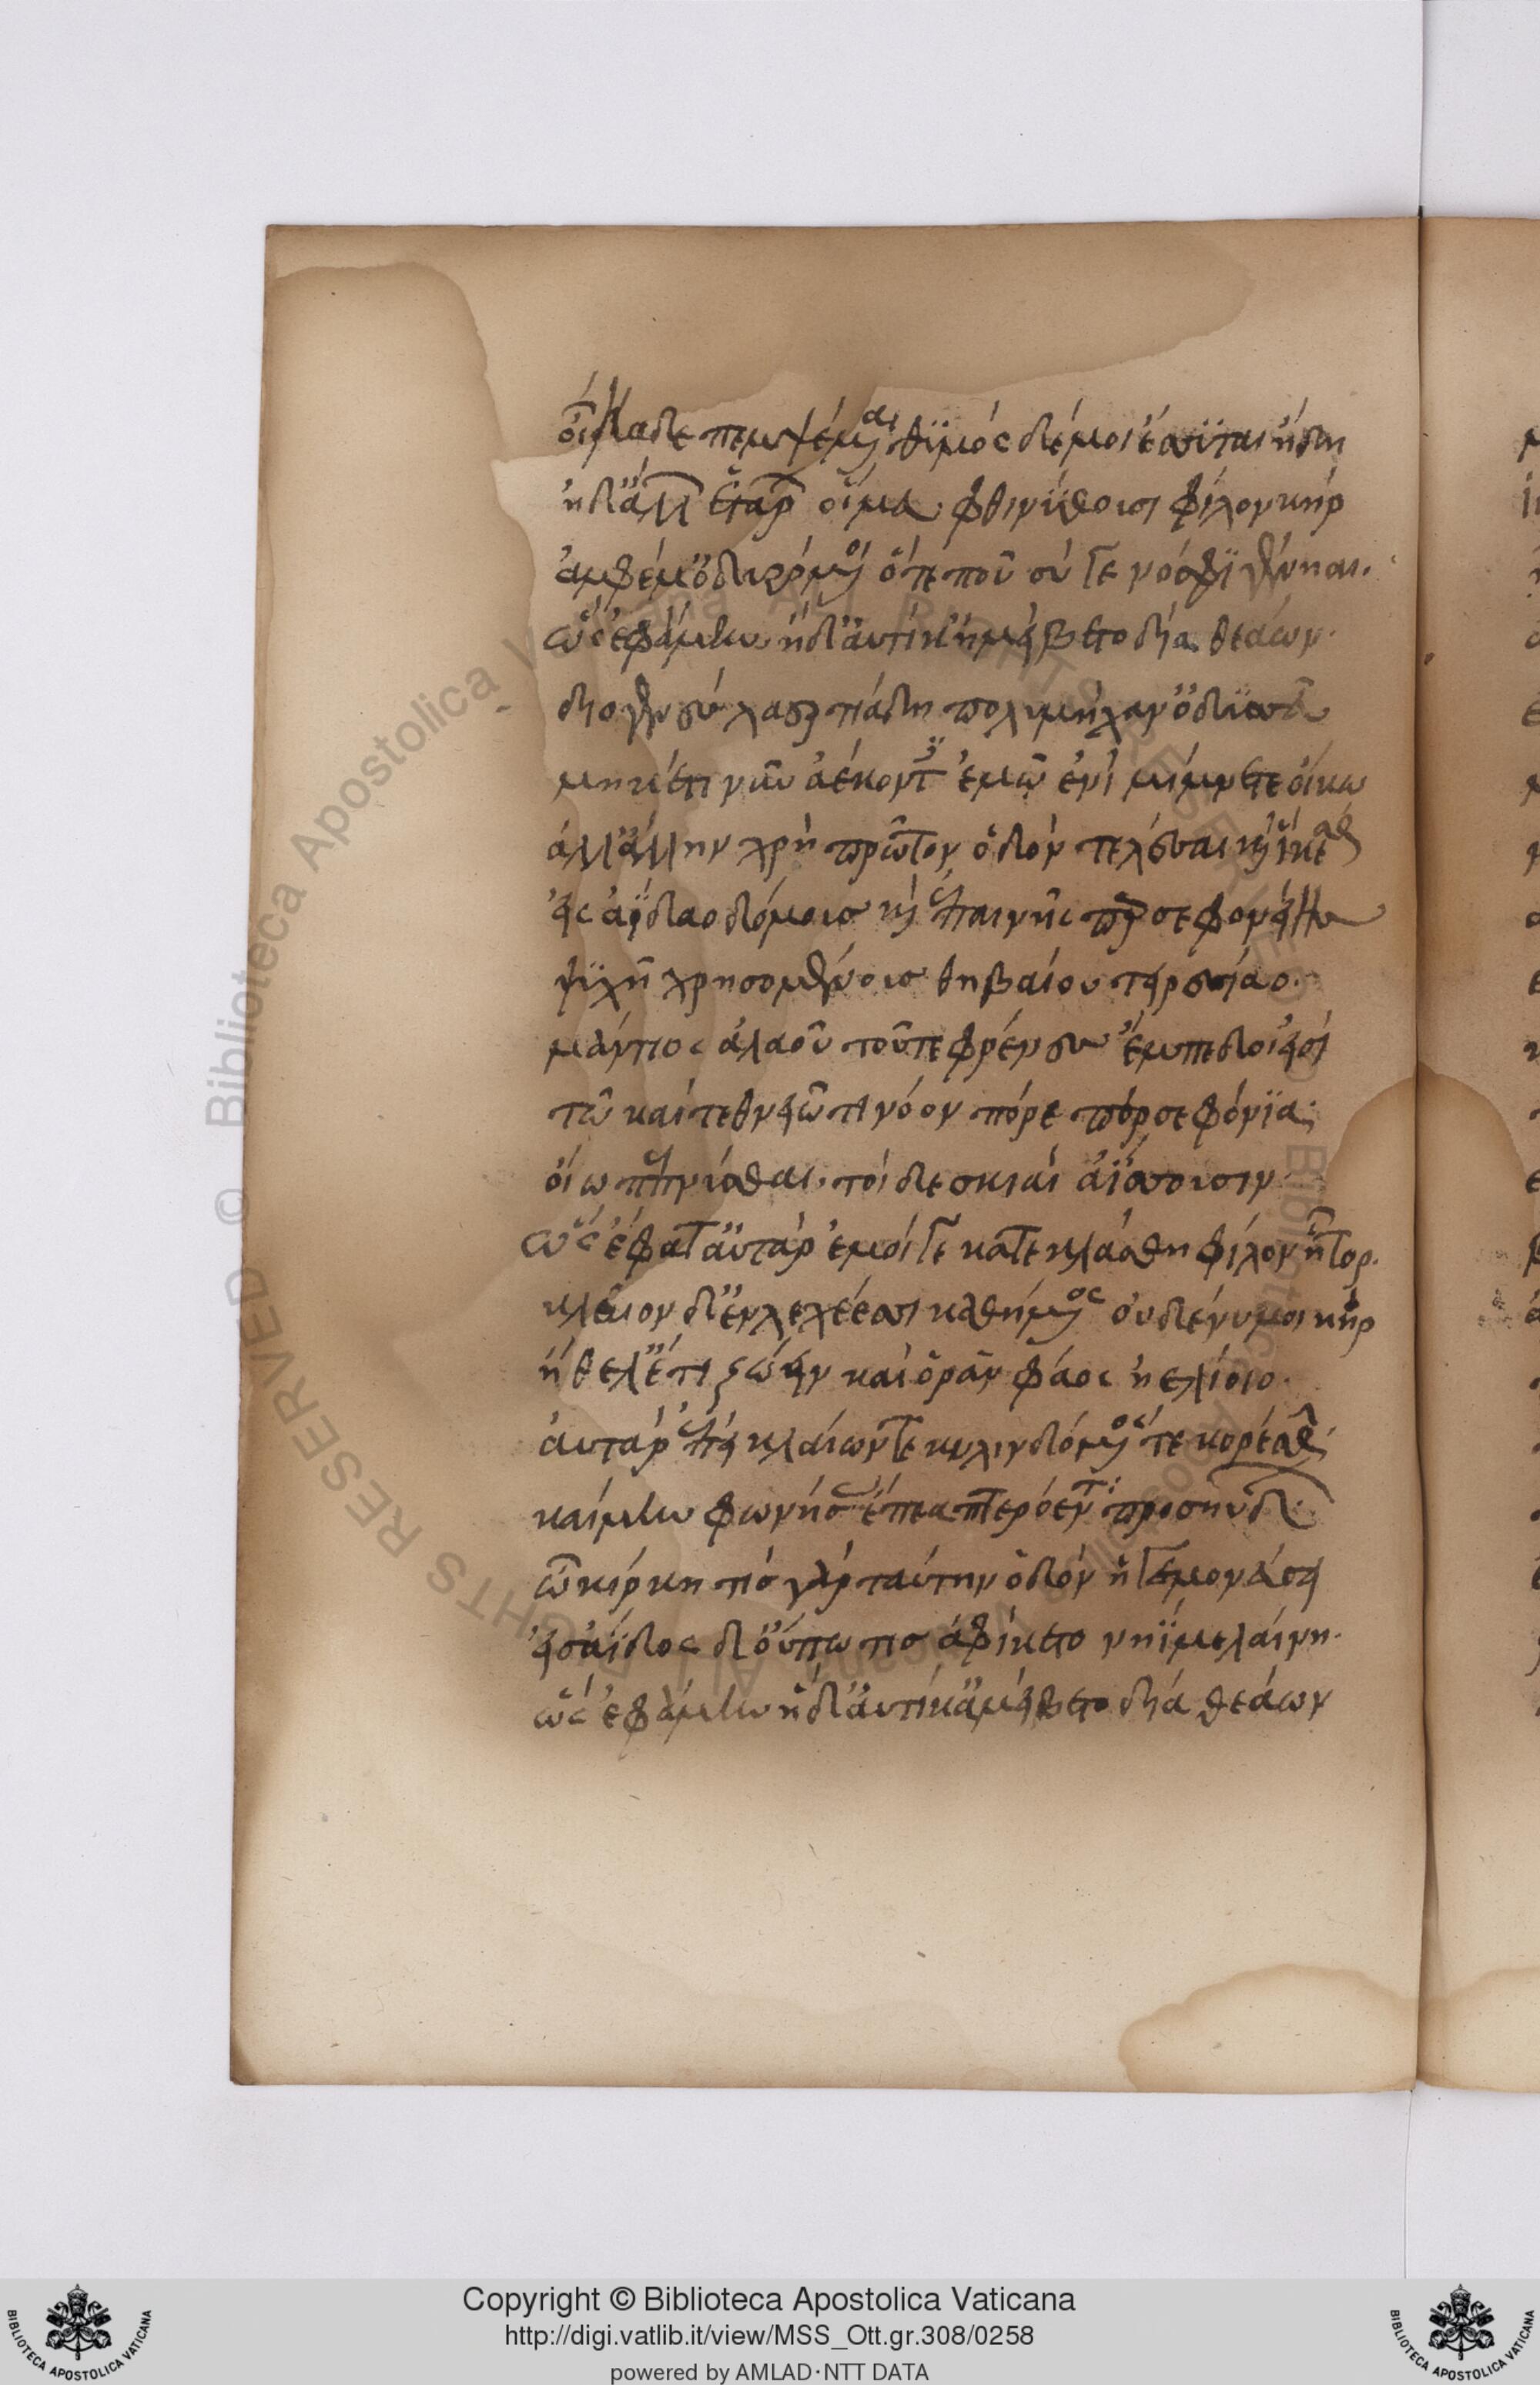 οἴκαδε πεμψέμεναι· θϋμός δέμοι ἔσσϋται ἤδη
ἠδ' ἄλλ' ἑτάρ οἵμευ φθινύθουσι φίλον κῆρ
ἀμφέμ' ὀδυρόμενοι ὅτε που σύ γε νόσφϊ γένηαι.
ὣς ἐφάμην ἡ δ' ἀυτίκ' ἠμείβετο δῖα θεάων·
διογενὲς λαερτιάδη πολυμήχαν' ὀδυσσεῦ
μηκέτι νῦν ἀέκοντες ἐμῶ ἐνὶ μίμνετε οἴκω
ἀλλ' ἄλλην χρὴ πρῶτον ὁδὸν τελέσαι καὶ ἱκέσθαι
εἰς ἀΐδαο δόμους καὶ ἐπαινῆς περσεφονείης
ψϋχῆ χρησομένους θηβαίου τειρεσίαο·
μάντιος ἀλαοῦ τοῦτε φρένες ἔμπεδοι εἰσί
τῶ καί τεθνειῶτι νόον πόρε περσεφόνϊα·
οἴω πεπνύσθαι· τοὶ δε σκιαὶ ἀΐσσουσιν·
ὣς ἔφατ' ἀυτὰρ ἐμοί γε κατεκλάσθη φίλον ἦτορ·
κλαῖον δ' ἐν λεχέεσσι καθήμενος ουδέ νυ μοι κῆρ
ἤθελ' ἔτι ζώειν καὶ ὁρᾶν φάος ἠελίοιο·
ἀυτὰρ ἐπεὶ κλαίων τε κυλινδόμενός τε κορέσθην·
καί μιν φωνήσας ἔπεα πτερόεντα προσηύδων·
ὦ κίρκη τίς γὰρ ταύτην ὁδὸν ἡγεμονεύσει
εἰς ἄϊδος δ' οὔπω τις ἀφίκετο νηῒ μελαίνη·
ὣς ἐφάμην ἡ δ' ἀυτίκ' ἀμείβετο δῖα θεάων
Copyright © Biblioteca Apostolica Vaticana
http://digi.vatlib.it/view/MSS_Ott.gr.308/0258
powered by AMLAD·NTT DATA